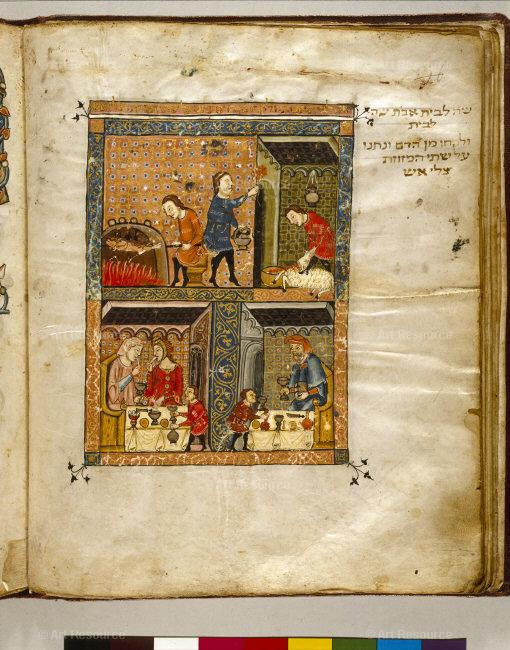 שה לבית אבת שה
לבית
ולקחו מן הדם ונתנו
על שתי המזוזת
צלי אש
© Art Resource
© Art Resource